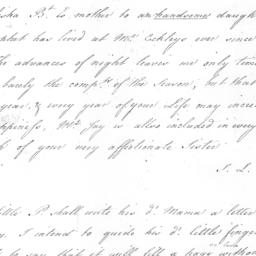 isha. B.t to mother to an handsome daugh
phet has lived at Mrs. Eckleys ever since
The advances of night leaves me only time
barely the comp.ts of the Season, but that
year, & every year of your Life may incre
ppiness, Mr. Jay is also included in every
h of your very affectionate Sister
S. L.
ittle P. shall write his d.r Mama a letter
y. I intend to guide his d.r little finge
to say that it will fill a page without